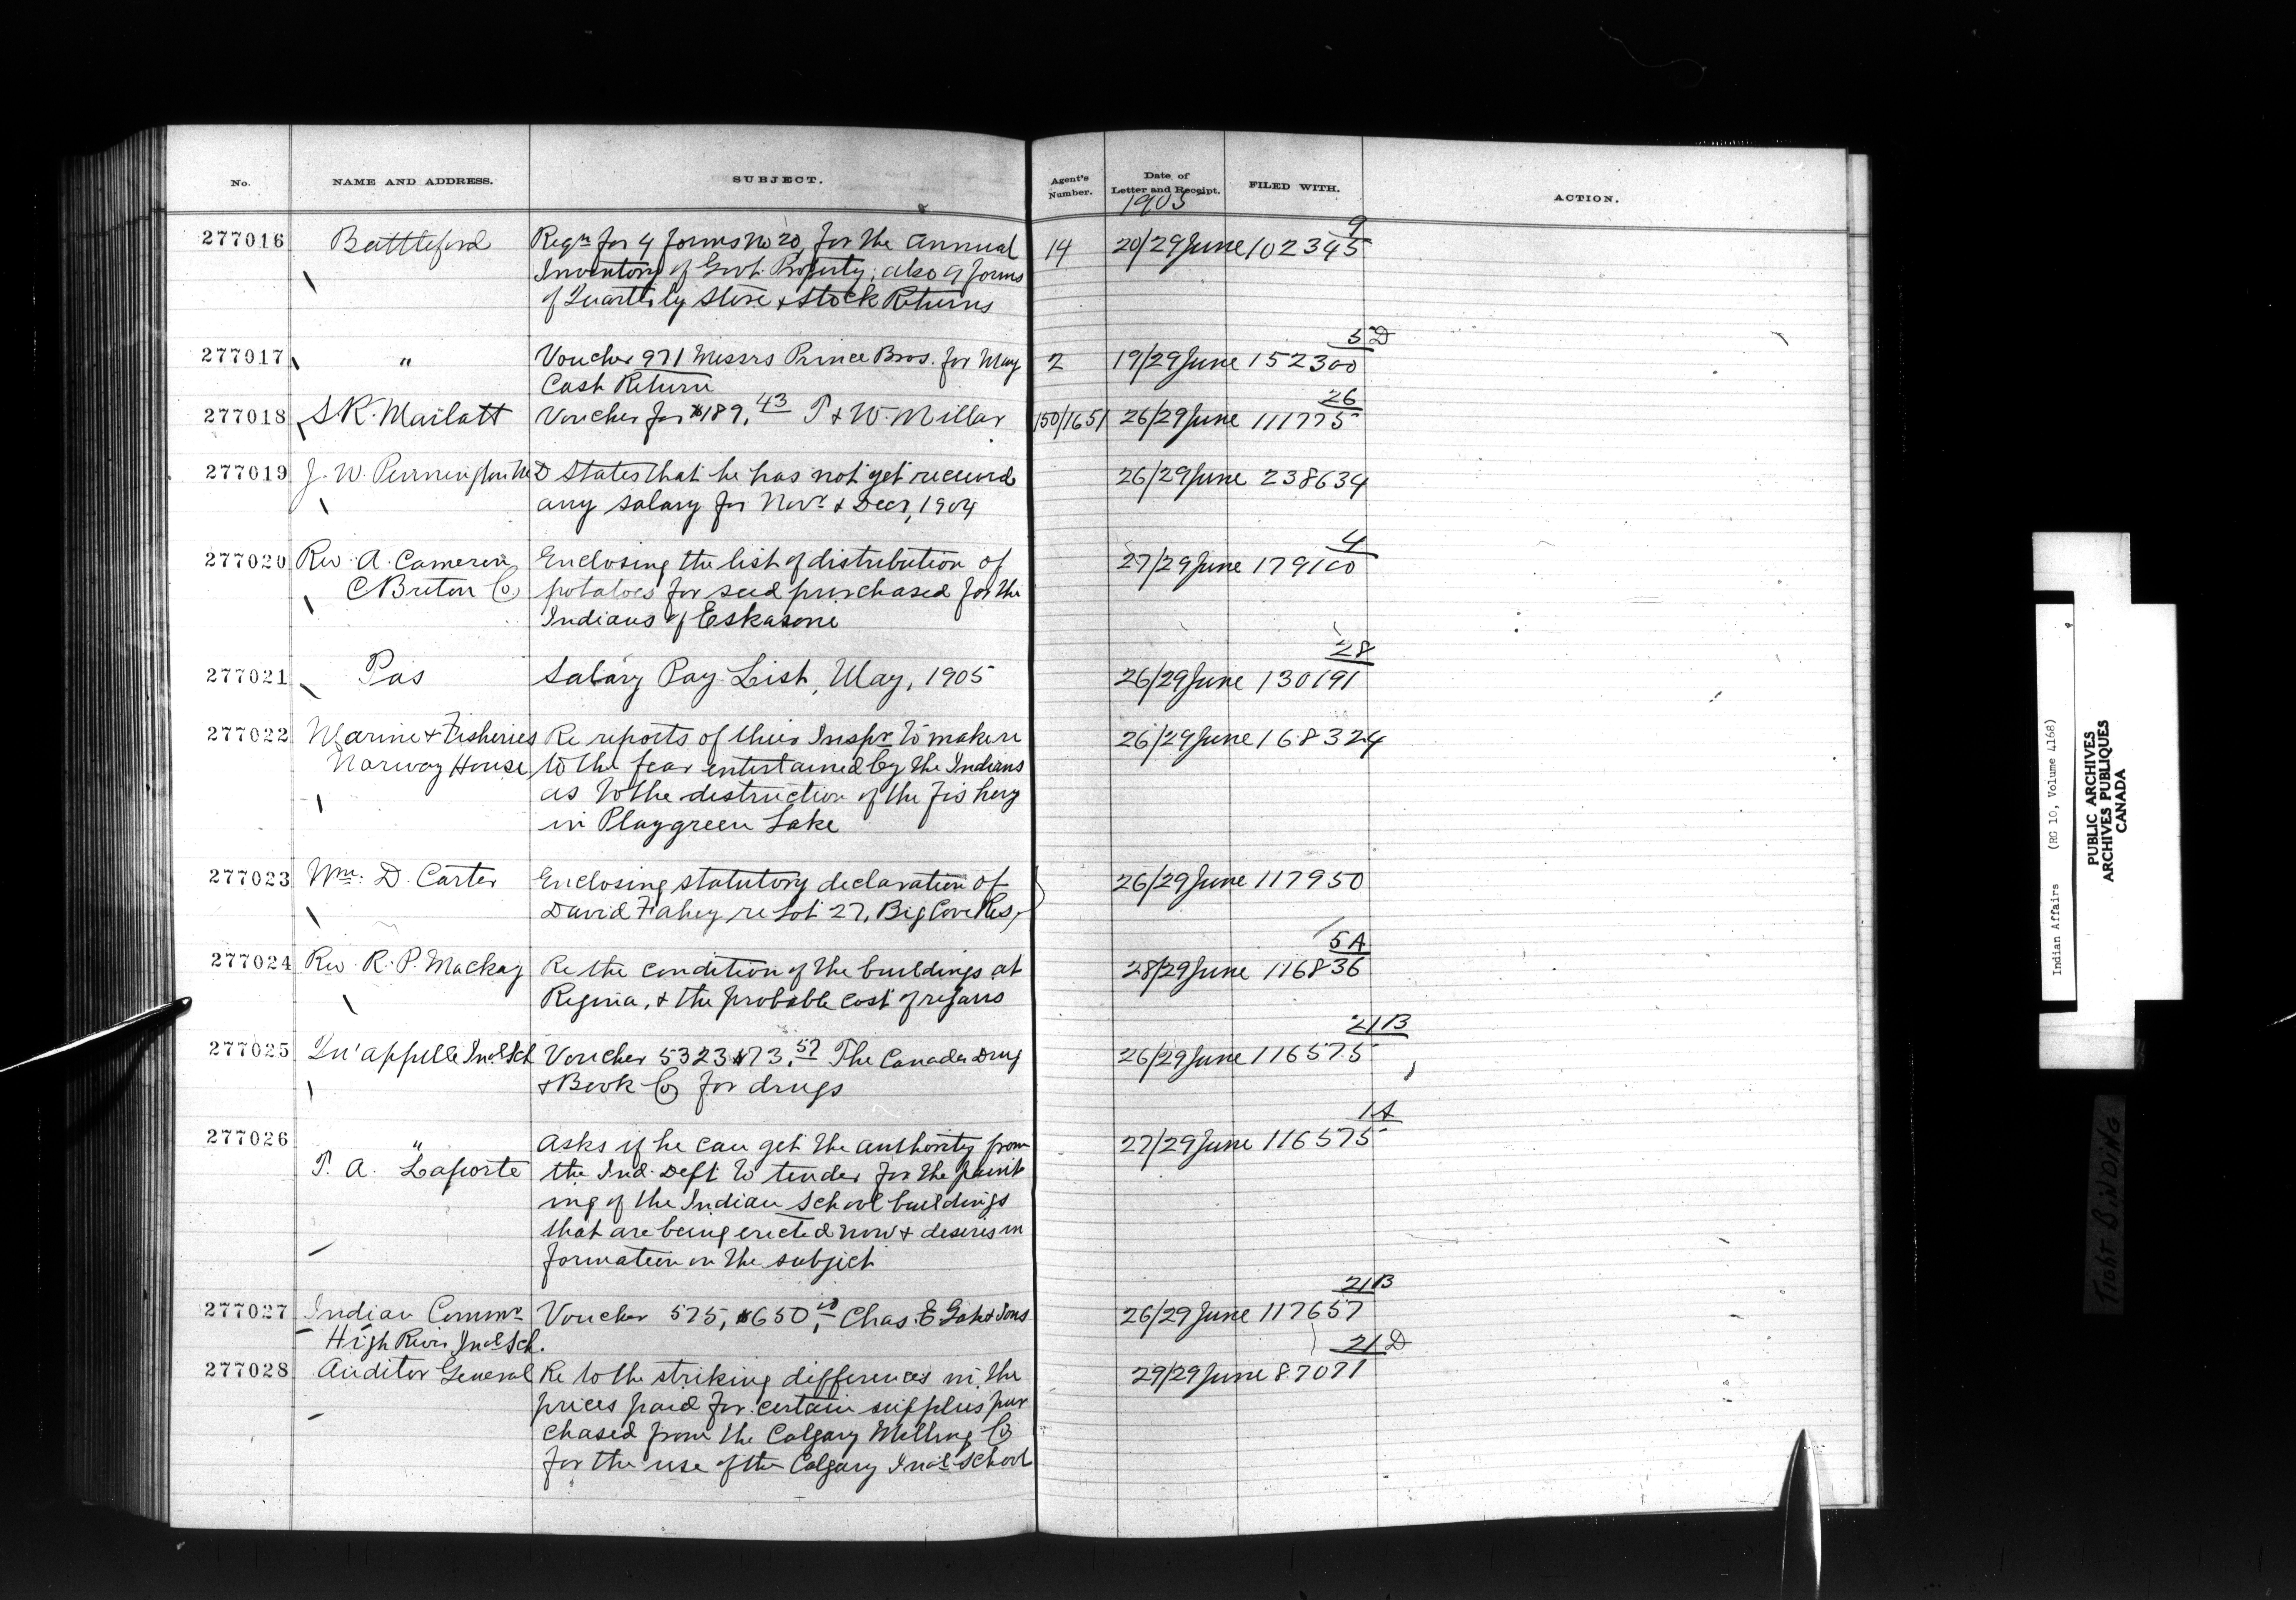 No. NAME AND ADDRESS. SUBJECT. Agent's Number. Date of Letter and Receipt. FILED WITH. ACTION.
1905
9
277016 Battleford Reqn for 4 forms No 20, for the Annual 14 20/29 June 102345
Inventory of Govt. Property; also 9 forms
of Quarterly Store & Stock Returns
3 D
277017 " Voucher 971 Messrs Prince Bros. for May 2 19/29 June 152300
Cash Return
26
277018 S R. Marlatt Voucher for $189.43 T & W. Millar 150/1651 26/29 June 111775
277019 J. W. Pennington M D States that he has not yet received 26/29 June 238634
any salary for Novr & Decr, 1904
4
277020 Rev. A. Cameron, Enclosing the list of distribution of 27/29 June 179100
C Breton Co potatoes for seed purchased for the
Indians of Eskasoni
28
277021 Pas Salary Pay List, May, 1905 26/29 June 130191
277022 Marine & Fisheries Re reports of their Inspr to make re 26/29 June 168324
Norway House to the fear entertained by the Indians
as to the destruction of the fishery
in Playgreen Lake
277023 Wm. D. Carter Enclosing statutory declaration of 26/29 June 117950
David Fahey re Lot 27, Big Cove Res.
5 A
277024 Rev. R. P. Mackay Re the condition of the buildings at 28/29 June 116836
Regina, & the probable cost of repairs
21 B
277025 Qu'appelle Indl Sch Voucher 5323 $73.57 The Canada Drug 26/29 June 116575
& Book Co for drugs
1 A
277026 " Asks if he can get the authority from 27/29 June 116575
T. A. Laporte the Ind. Dept to tender for the paint
ing of the Indian School buildings
that are being erected now & desires in
formation on the subject
21 B
277027 Indian Commr Voucher 575, $650. Chas. E. & Sons 26/29 June 117657
High River Indl Sch.
21 D
277028 Auditor General Re to the striking differences in the 29/29 June 87071
prices paid for certain supplies pur
chased from the Calgary Milling Co
for the use of the Calgary Indl School
Indian Affairs (RG 10, Volume 4168)
PUBLIC ARCHIVES
ARCHIVES PUBLIQUES
CANADA
TIGHT BINDING